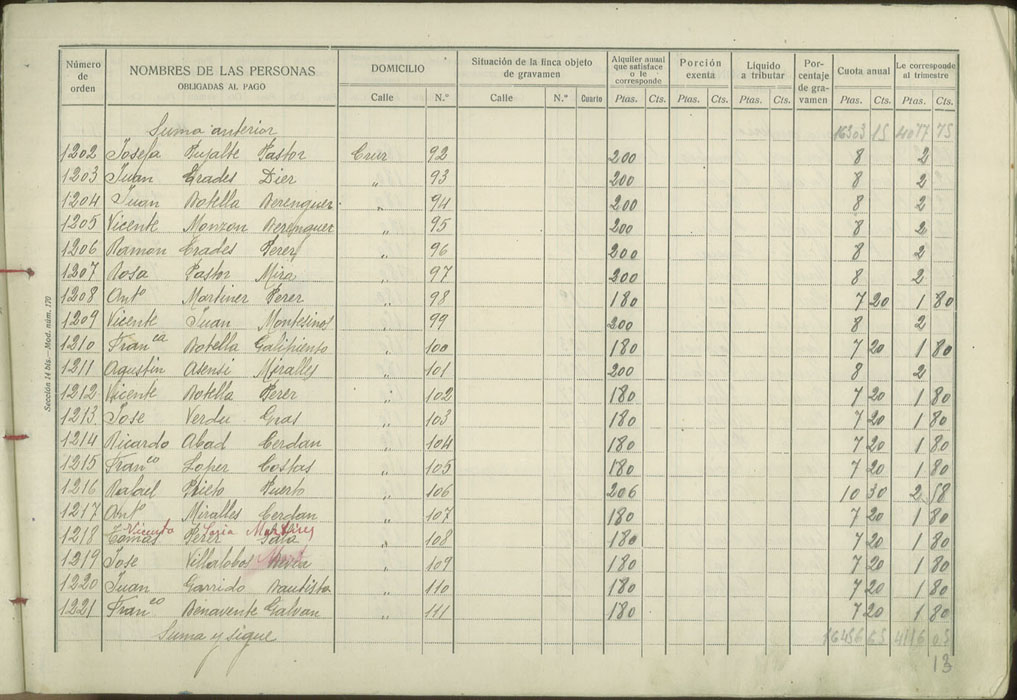 Número de orden
NOMBRES DE LAS PERSONAS
OBLIGADAS AL PAGO
DOMICILIO
Calle N.º
Situación de la finca objeto de gravamen
Calle N.º Cuarto
Alquiler anual que satisface o le corresponde
Ptas. Cts.
Porción exenta
Ptas. Cts.
Líquido a tributar
Ptas. Cts.
Por-centaje de gra-vamen
Cuota anual
Ptas. Cts.
Le corresponde al trimestre
Ptas. Cts.
Suma anterior 16303 15 4077 75
1202 Josefa Pujalte Pastor Cruz 92 200 8 2
1203 Juan Erades Dier " 93 200 8 2
1204 Juan Botella Berenguer " 94 200 8 2
1205 Vicente Monzon Berenguer " 95 200 8 2
1206 Ramon Erades Perez " 96 200 8 2
1207 Rosa Pastor Mira " 97 200 8 2
1208 Antº Martinez Perez " 98 180 7 20 1 80
1209 Vicente Juan Montesinos " 99 200 8 2
1210 Franca Botella Galipienso " 100 180 7 20 1 80
1211 Agustin Asensi Miralles " 101 200 8 2
1212 Vicente Botella Perez " 102 180 7 20 1 80
1213 Jose Verdu Gras " 103 180 7 20 1 80
1214 Ricardo Abad Cerdan " 104 180 7 20 1 80
1215 Franco Lopez Costas " 105 180 7 20 1 80
1216 Rafael Prieto Puerto " 106 206 10 30 2 58
1217 Antº Miralles Cerdan " 107 180 7 20 1 80
Vicenta Soria Martinez
1218 Tomas Perez " 108 180 7 20 1 80
1219 Jose Villalobos " 109 180 7 20 1 80
1220 Juan Garrido Bautista " 110 180 7 20 1 80
1221 Franco Benavente Galvan " 111 180 7 20 1 80
Suma y sigue 16456 65 4116 05
13
Sección 14 bis.—Mod. núm. 170